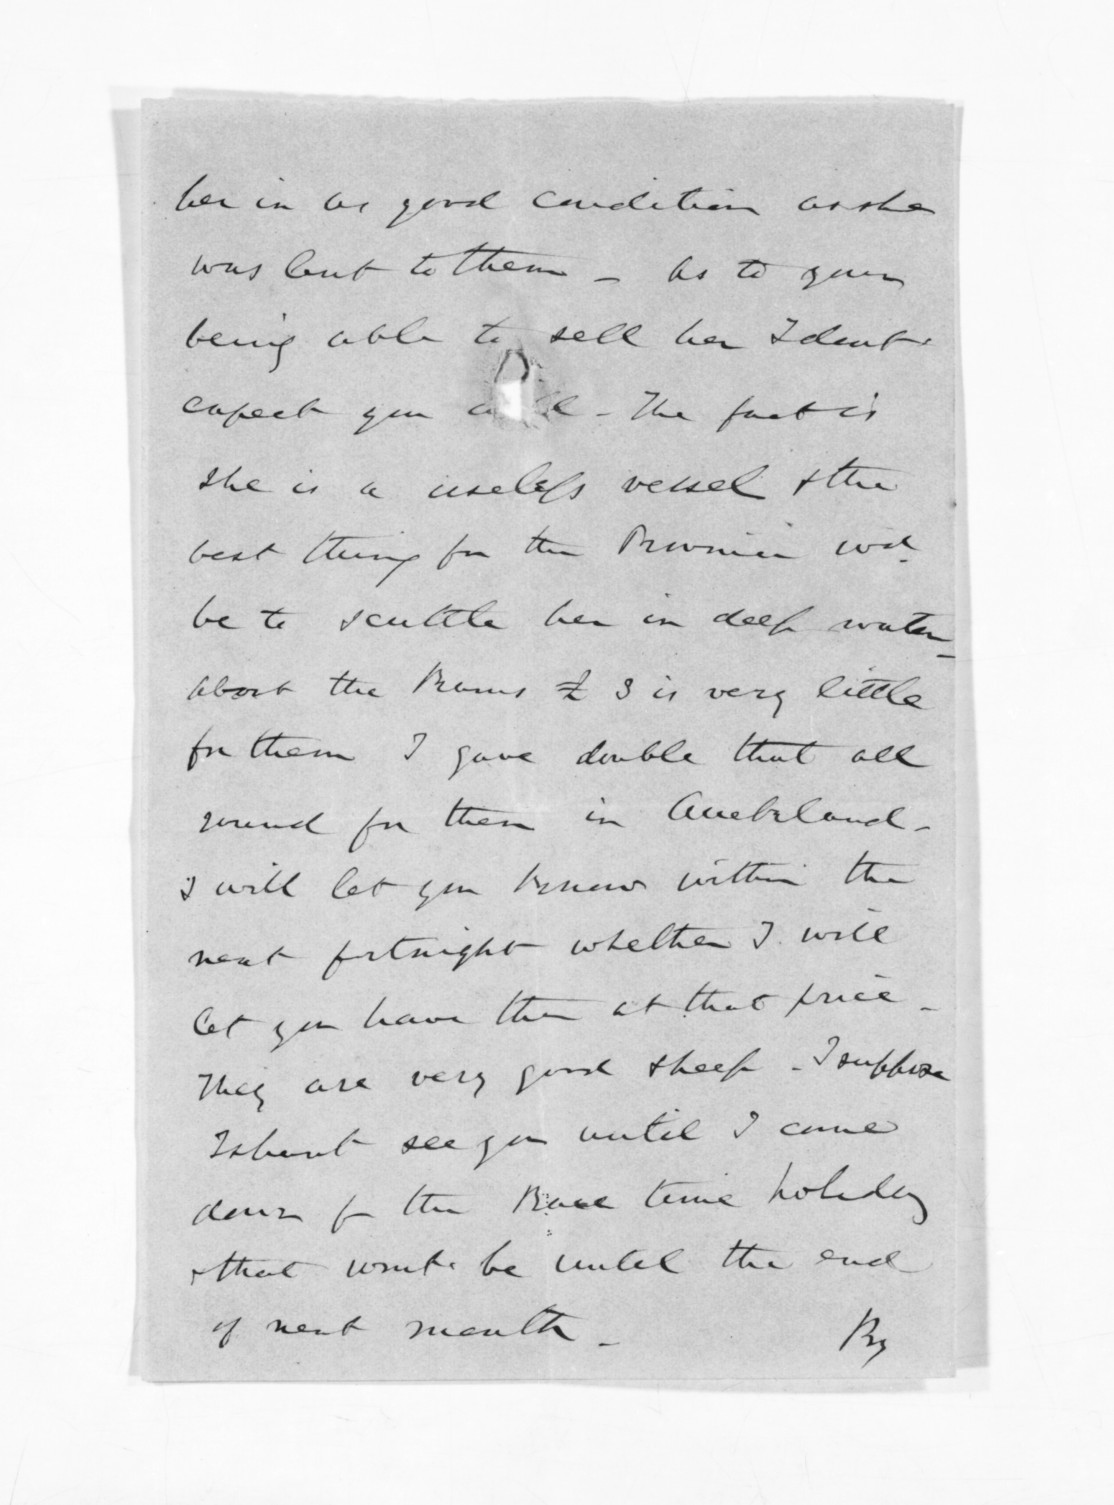 her in as good condition as she
was lent to them - As to your
being able to sell her I don't
expect you - The fact is
she is a useless vessel & the
best thing for the Province wd.
be to scuttle her in deep water -
About the Rams £3 is very little
for them I gave double that all
round for them in Auckland -
I will let you know within the
next fortnight whether I will
let you have them at that price -
They are very good sheep - I suppose
I shan't see you until I come
down for the Race time holiday
& that wont be until the end
of next month - By